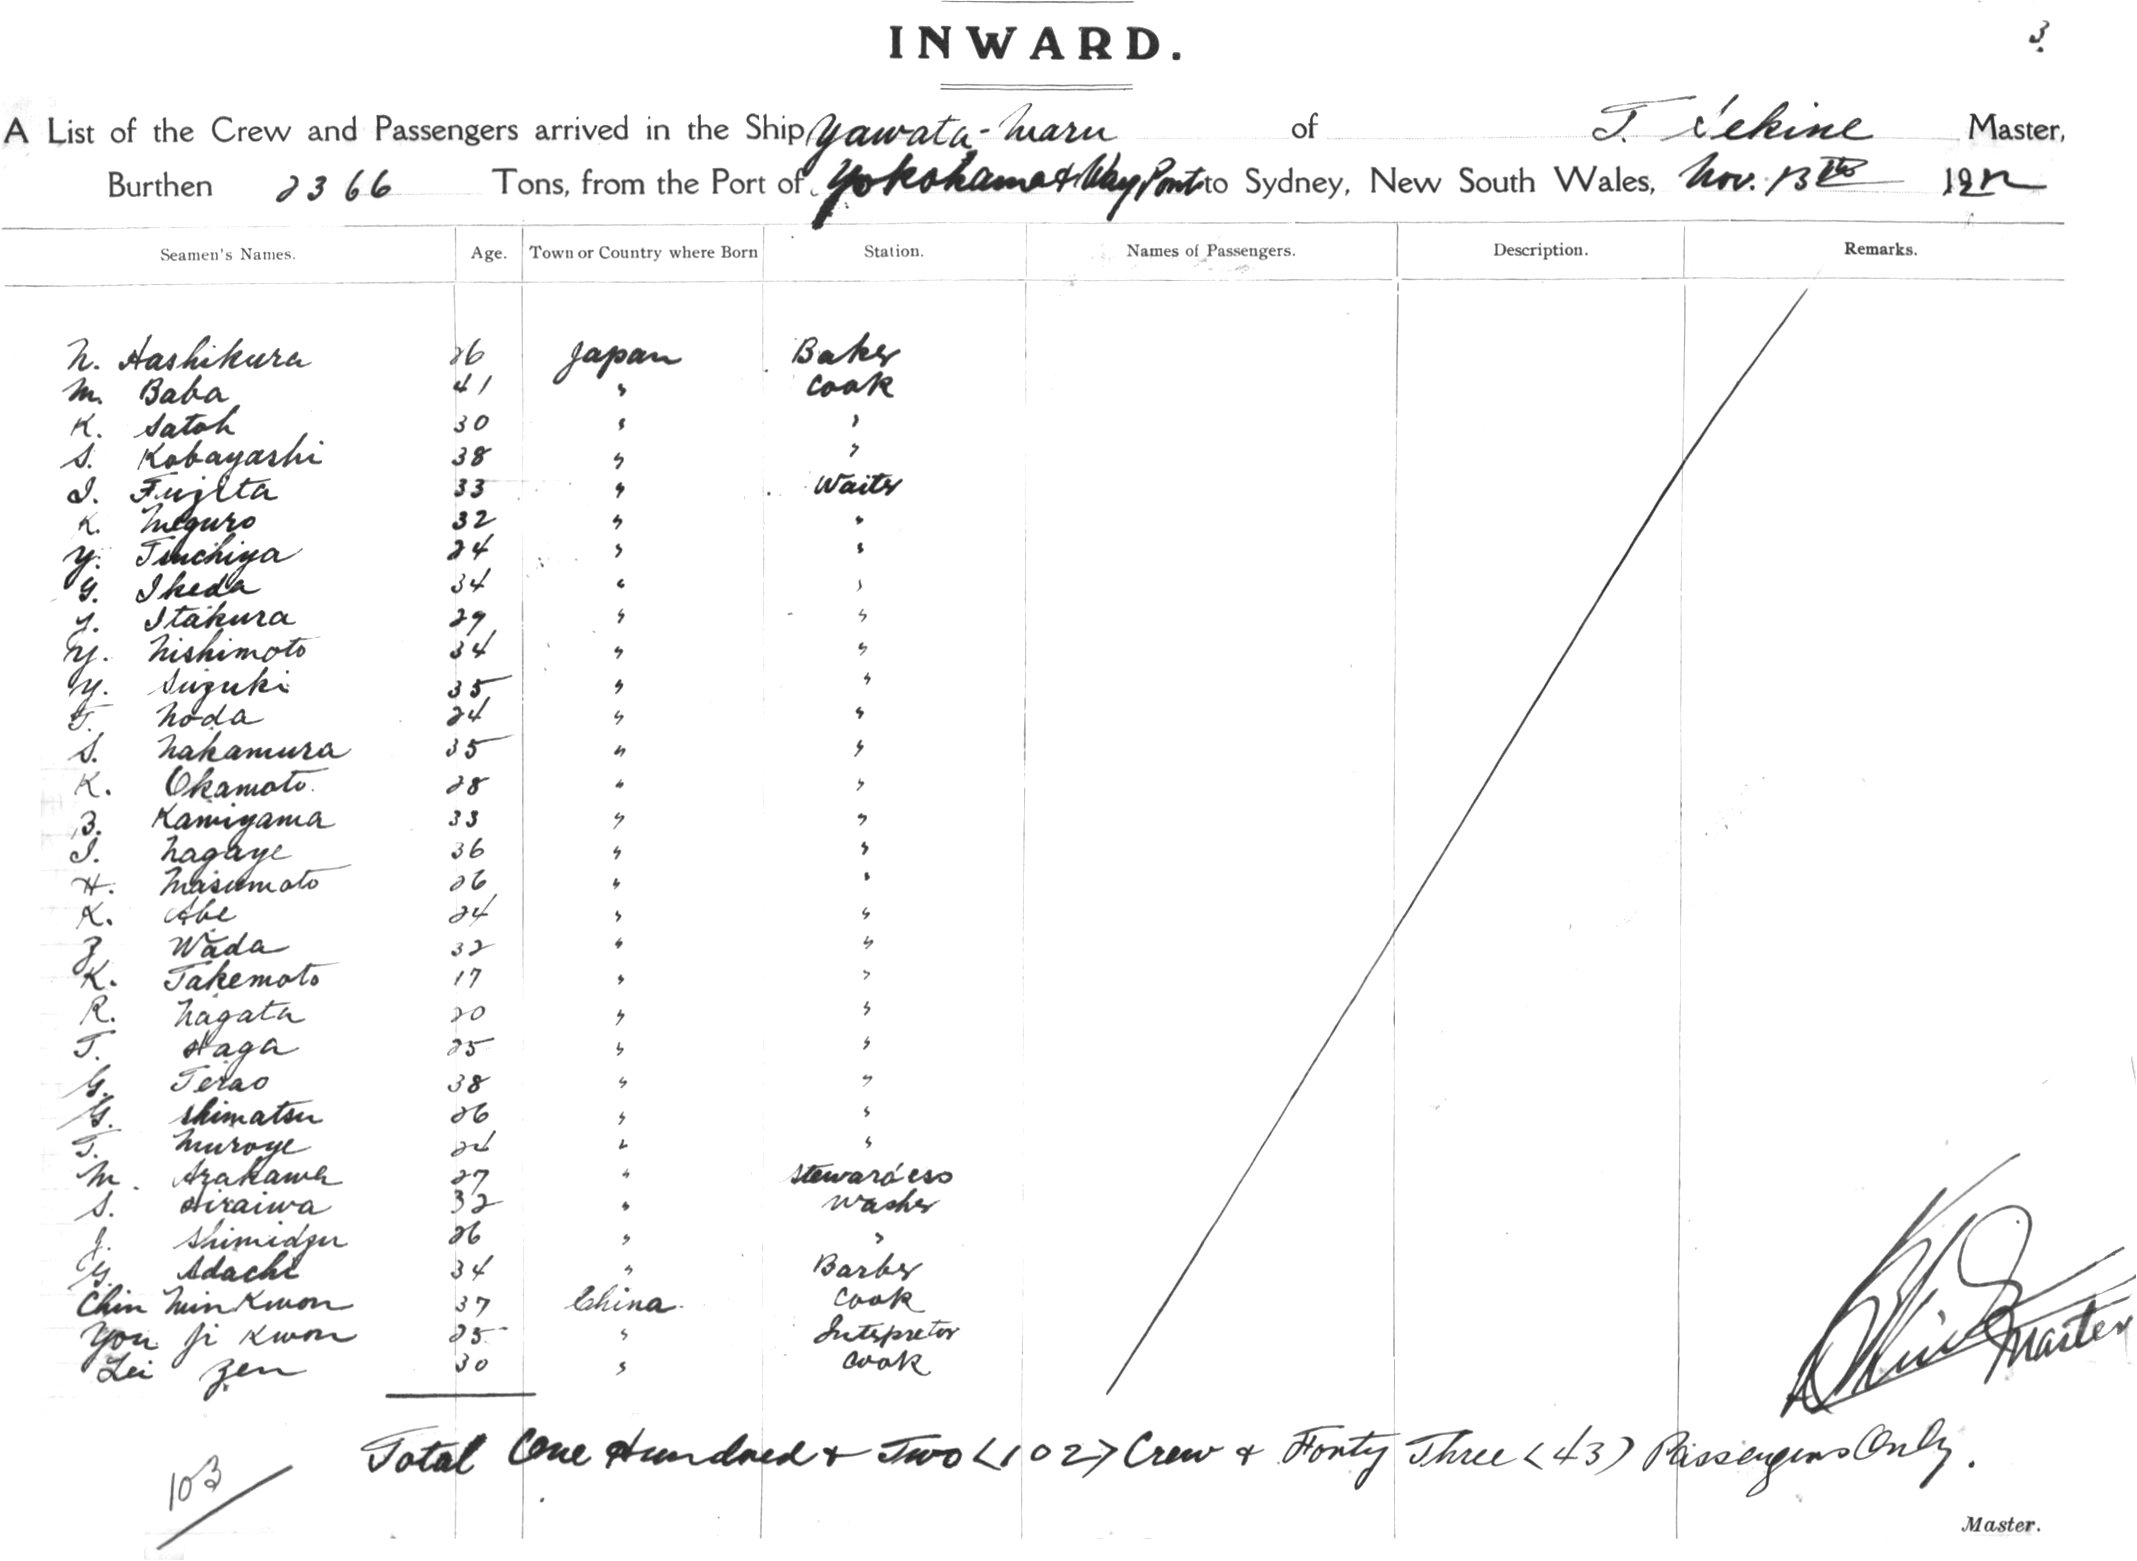 INWARD.
3.
A List of the Crew and Passengers arrived in the Ship Yawata-Maru of T. Sekine Master,
Burthen 2366 Tons, from the Port of Yokohama & Way Ports to Sydney, New South Wales, Nov. 13th 1912
Seamen's Names. Age. Town or Country where Born Station. Names of Passengers. Description. Remarks.
N. Hashikura 26 Japan Baker
M. Baba 41 " Cook
K. Satoh 30 " "
S. Kobayashi 38 " "
I. Fujita 33 " Waiter
K. Meguro 32 " "
Y. Tsuchiya 24 " "
G. Ikeda 34 " "
Y. Itakura 29 " "
Y. Nishimoto 34 " "
Y. Suzuki 35 " "
T. Noda 24 " "
S. Nakamura 35 " "
K. Okamoto. 28 " "
B. Kamiyama 33 " "
I. Nagaye 36 " "
H. Masumoto 26 " "
K. Abe 24 " "
Z Wada 32 " "
K. Takemoto 17 " "
R. Nagata 20 " "
T. Haga 25 " "
G. Terao 38 " "
G. Shimatsu 26 " "
T. Muroye 24 " "
M. Arakawa 27 " Stewardess
S. Hiraiwa 32 " Washer
J. Shimidzu 26 " "
G. Adachi 34 " Barber
Chin Min Kwon 37 China. Cook
You Ji Kwon 25 " Interpretor
Lei Zen 30 " Cook
Master
Total One Hundred & Two <102> Crew & Forty Three <43) Passengers Only.
103
Master.